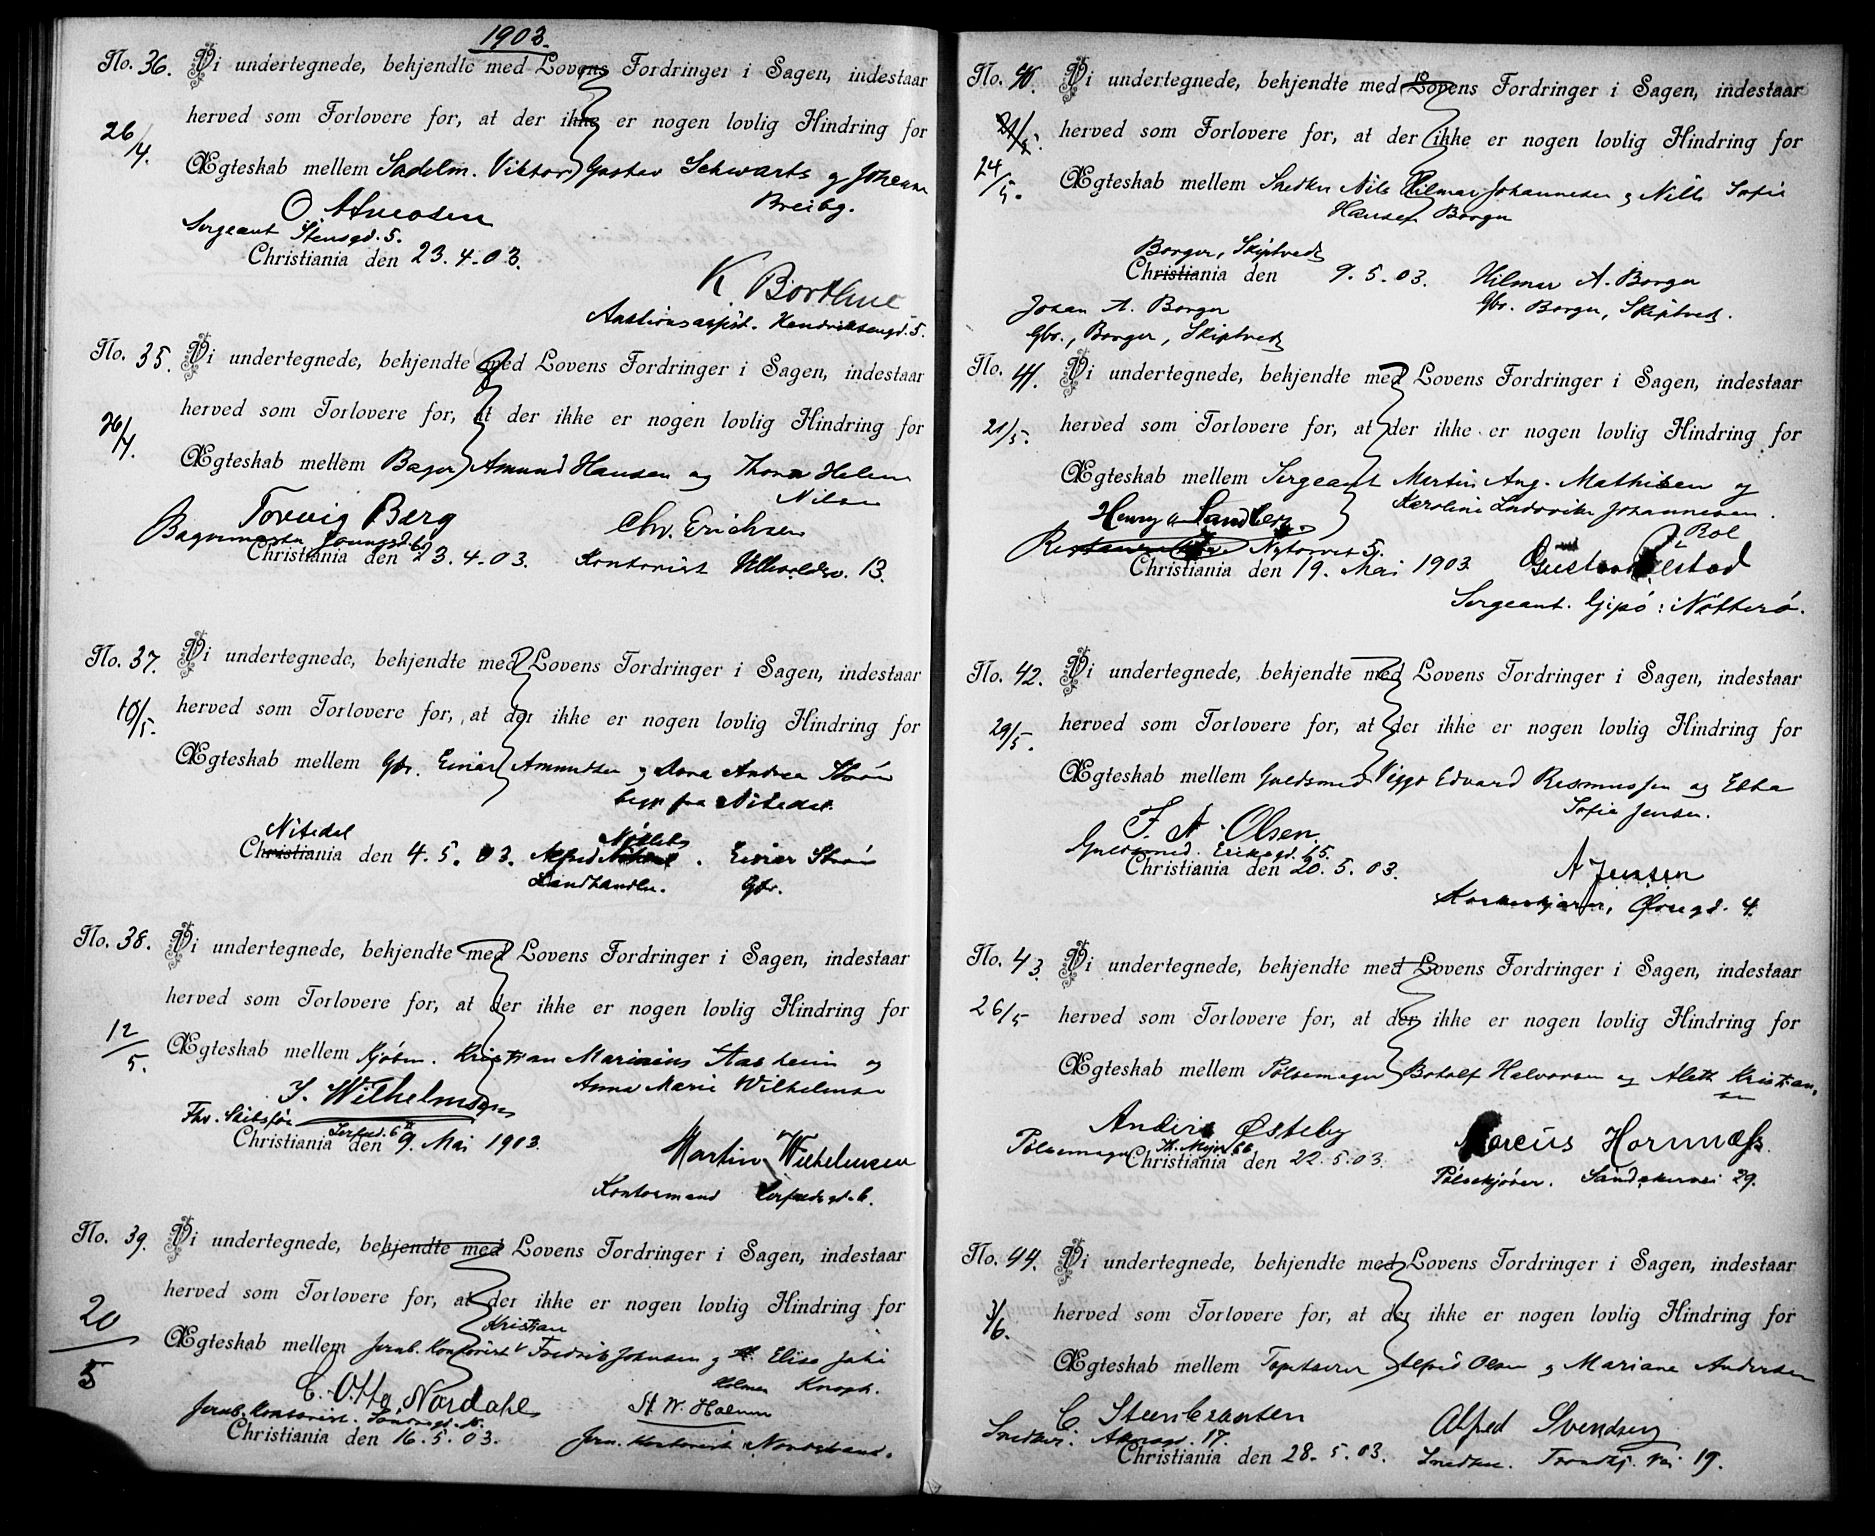 1903.
No. 36. Vi undertegnede, bekjendte med Lovens Fordringer i Sagen, indestaar
herved som Forlovere for, at der ikke er nogen lovlig Hindring for
26/4.
Ægteskab mellem Sadelm. Viktor Gustav Schwartz og Johanne
Breibg.
Sergeant Stensgd. 5.
Christiania den 23.4.03.
K. Borthne
Hendriksensgd. 5.
No. 35. Vi undertegnede, bekjendte med Lovens Fordringer i Sagen, indestaar
herved som Forlovere for, at der ikke er nogen lovlig Hindring for
26/4.
Ægteskab mellem Bager Amund Hansen og Thora Helene
Nilsen
Torvig Berg
Chr. Erichsen
Christiania den 23.4.03. Kontorist Ullevoldsv. 13.
No. 37. Vi undertegnede, bekjendte med Lovens Fordringer i Sagen, indestaar
herved som Forlovere for, at der ikke er nogen lovlig Hindring for
10/5.
Ægteskab mellem Gbr. Einar Amundsen og Dora Andrea Strøm
begge fra Nitedal.
Nitedal
Christiania den 4.5.03. Alfred . Einar Strøm
Landhandler. Gbr.
No. 38. Vi undertegnede, bekjendte med Lovens Fordringer i Sagen, indestaar
herved som Forlovere for, at der ikke er nogen lovlig Hindring for
12/5.
Ægteskab mellem Kjøbm. Kristian Marinius Aasheim og
Anna Marie Wilhelmsen
J. Wilhelmsen
Fhv. Skibsfør
Christiania den 9. Mai 1903.
Martin Wilhelmsen
Kontormand
No. 39. Vi undertegnede, bekjendte med Lovens Fordringer i Sagen, indestaar
herved som Forlovere for, at der ikke er nogen lovlig Hindring for
20/5
Kristian
Ægteskab mellem Jernb. Kontorist Fredrik Johnsen og Elise
Holmen Knoph.
C. Otto Nordahl
Jernb. Kontorist.
Christiania den 16.5.03. Jern. Kontorist Nordstrand.
No. 40. Vi undertegnede, bekjendte med Lovens Fordringer i Sagen, indestaar
herved som Forlovere for, at der ikke er nogen lovlig Hindring for
24/5.
Ægteskab mellem Snedker Nils Hilmar Johannesen og Nille Sofie
Hansen Borger
Borger, Skiptvedt
Christiania den 9.5.03. Hilmar A. Borger
Johan A. Borger Gbr. Borger, Skiptvedt.
Gbr., Borger, Skiptvedt
No. 41. Vi undertegnede, bekjendte med Lovens Fordringer i Sagen, indestaar
herved som Forlovere for, at der ikke er nogen lovlig Hindring for
21/5.
Ægteskab mellem Sergeant Martin Aug. Mathisen og
Karoline Ludovika Johannesen.
Henry Sandberg
Nytorvet 5.
Christiania den 19. Mai 1903
Sergeant. Gipø: Nøtterø.
No. 42. Vi undertegnede, bekjendte med Lovens Fordringer i Sagen, indestaar
herved som Forlovere for, at der ikke er nogen lovlig Hindring for
29/5.
Ægteskab mellem Guldsmed Viggo Edvard Rasmussen og Ebba
Sofie Jensen.
F. A. Olsen
Guldsmed. Eriksgd. 15.
Christiania den 20.5.03.
A Jensen
No. 43. Vi undertegnede, bekjendte med Lovens Fordringer i Sagen, indestaar
herved som Forlovere for, at der ikke er nogen lovlig Hindring for
26/5
Ægteskab mellem Pølsemager Botolf Halvorsen og Aleth Kristian-
sen
Anders Østeby
Marcus Hornnæss.
Pølsemager
Christiania den 22.5.03. Pølsekjører. Sandakervei 29.
No. 44. Vi undertegnede, bekjendte med Lovens Fordringer i Sagen, indestaar
herved som Forlovere for, at der ikke er nogen lovlig Hindring for
3/6.
Ægteskab mellem Tapetserer Alfred Olsen og Mariane Andersen
C Steenbransten
Alfred Svendsen
Snedker. Akersgd. 17.
Christiania den 28.5.03. Snedker. Trondhj. vei 19.